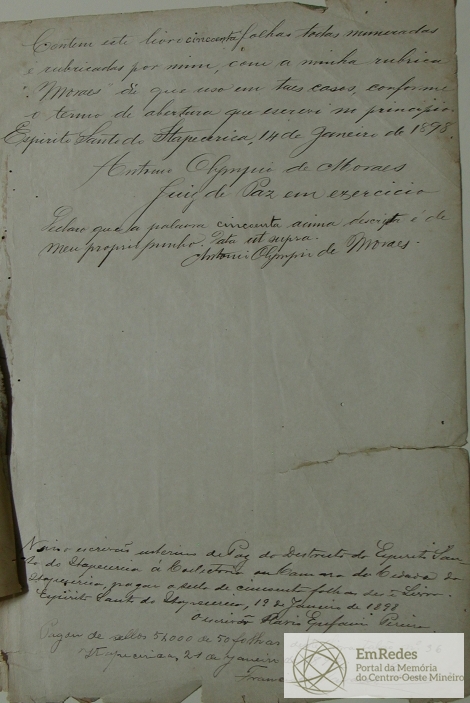 Contem este livro cincoenta folhas todas numeradas
e rubricadas por mim, com a minha rubrica
"Moraes" de que uso em taes casos, conforme
o termo de abertura que escrevi no principio.
Espirito Santo do Itapecerica, 14 de Janeiro de 1898.
Antonio Olympio de Moraes
Juiz de Paz em exercicio
Declaro que a palavra cincoenta acima descripta é de
meu proprio punho. Data ut supra.
Antonio Olympio de Moraes.
escrivão interino de Paz do Districto do Espirito San
to do Itapecerica á Collectoria da Cidade de
Itapecerica, pagar o sello de cincoenta folhas deste Livro.
Espirito Santo do Itapecerica, 19 de Janeiro de 1898
O escrivão Pereira
de sellos 5$000 de 50 folhas
Itapecerica, 21 de Janeiro de
EmRedes
Portal da Memória
do Centro-Oeste Mineiro